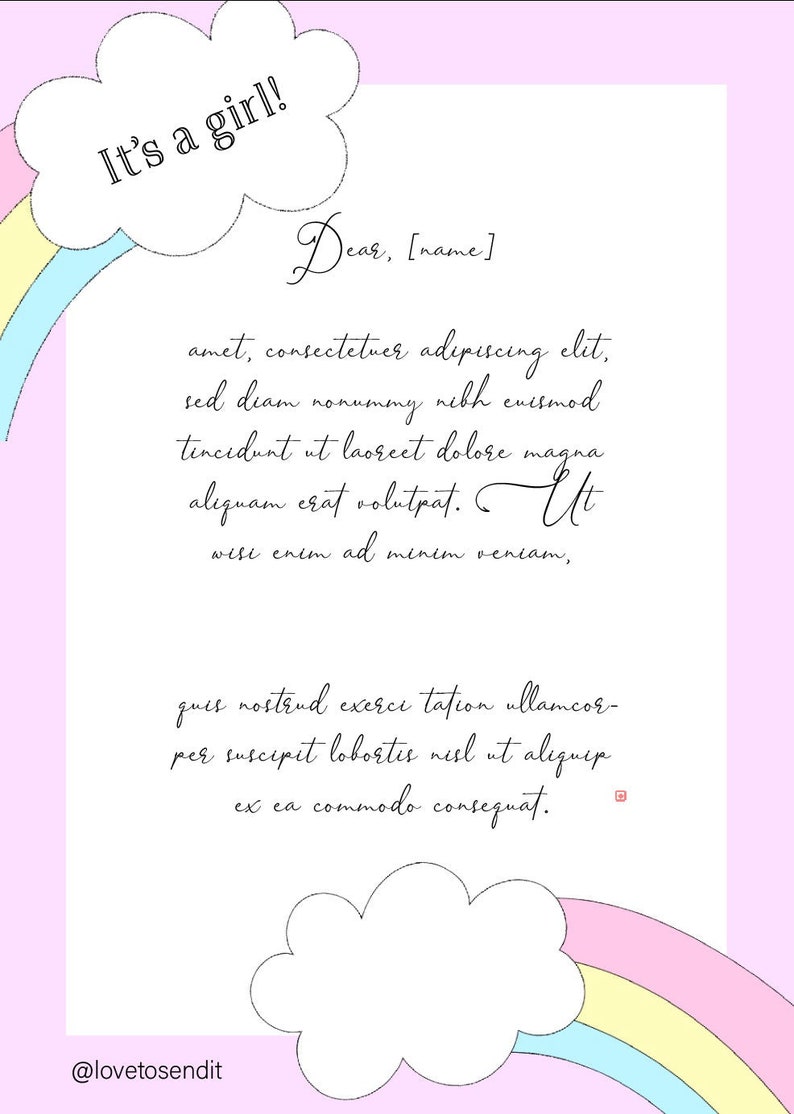 It's a girl!
Dear, [name]
amet, consectetuer adipiscing elit,
sed diam nonummy nibh euismod
tincidunt ut laoreet dolore magna
aliquam erat volutpat. Ut
wisi enim ad minim veniam,
quis nostrud exerci tation ullamcor-
per suscipit lobortis nisl ut aliquip
ex ea commodo consequat.
@lovetosendit